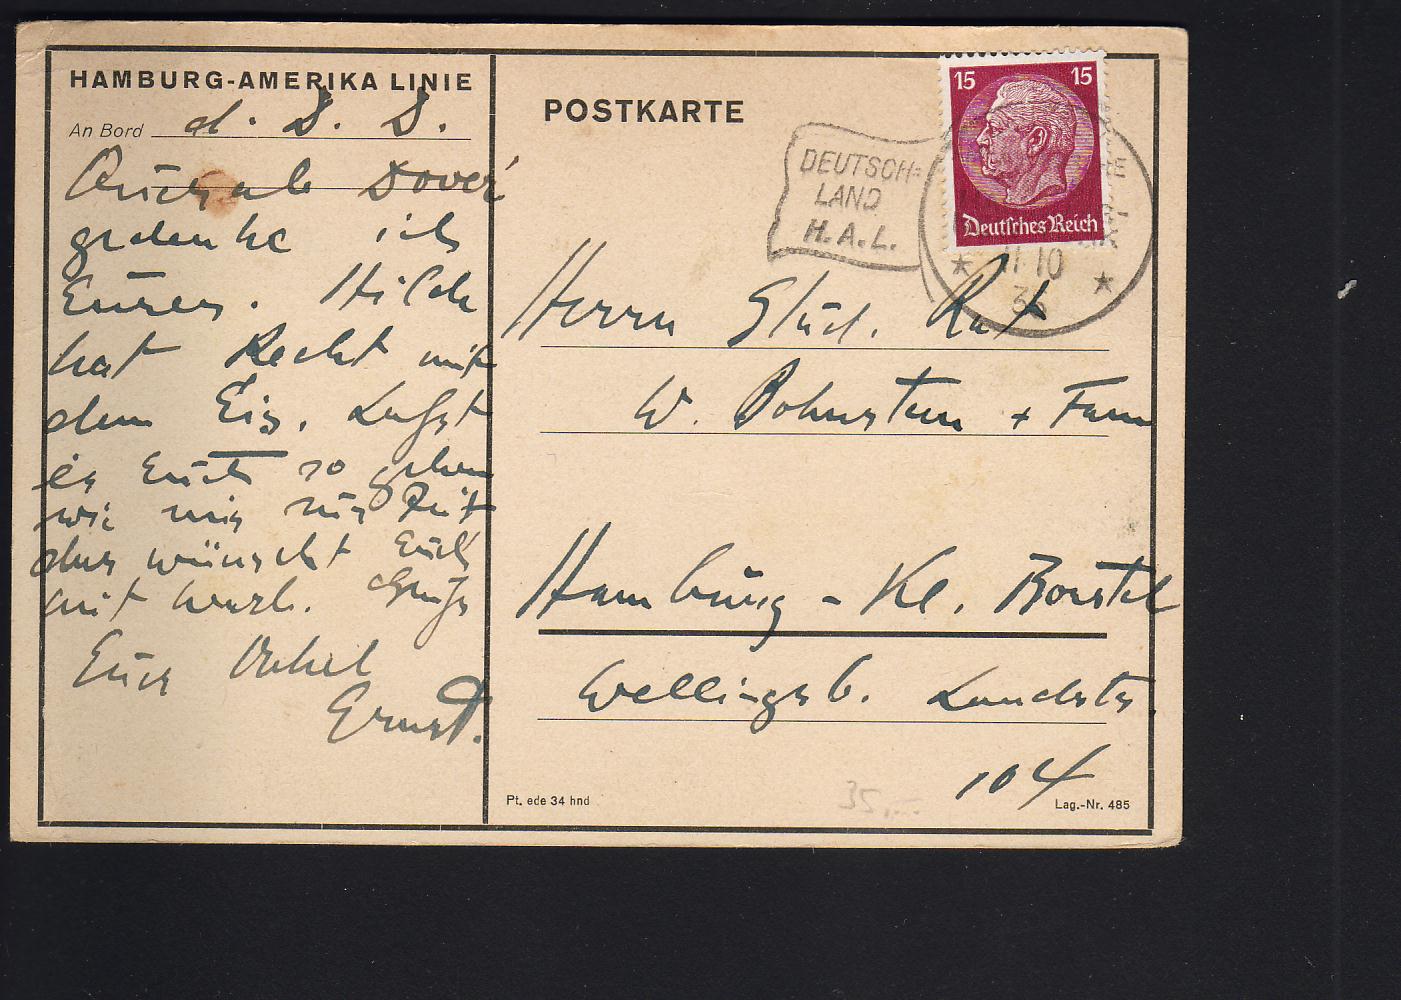 HAMBURG-AMERIKA LINIE
An Bord d. D. D.
Dover
gedenke ich
Eurer. Hilde
hat Recht mit
dem Eis. Lasst
es Euch so gehen
wie mir zur Zeit
das wünscht Euch
mit herzl. Gruss
Euer Onkel
Ernst.
POSTKARTE
15 15
Deutsches Reich
DEUTSCH=
LAND
H.A.L.
11 10
Herrn Stud. Rat
W. Bohnsten + Fam
Hamburg - Kl. Borstel
Wellingsb. Landstr.
104
Pt. ede 34 hnd
35,—
Lag.-Nr. 485